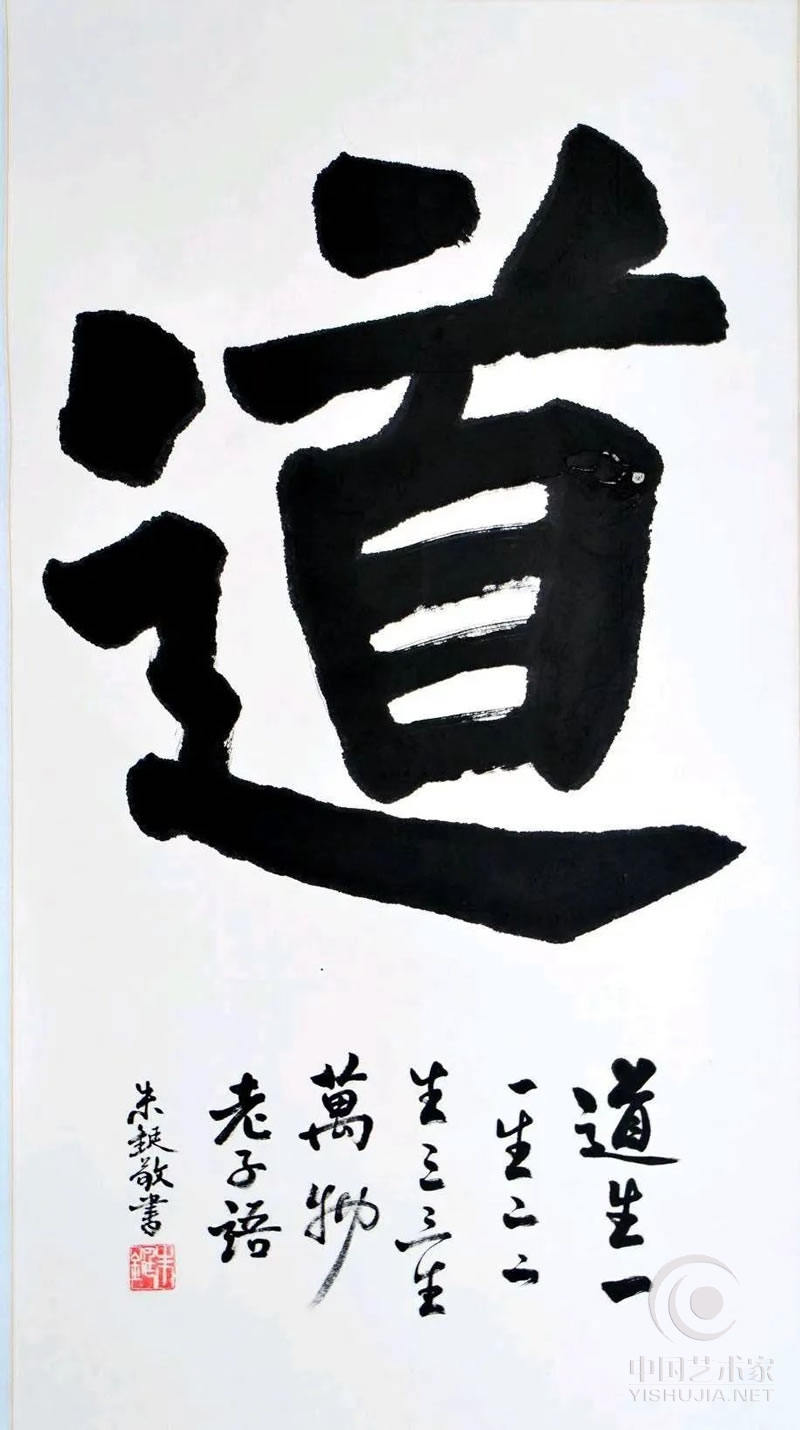 道
道生一
一生二二
生三三生
萬物
老子語
朱鋌敬書
中国艺术家
YISHUJIA.NET